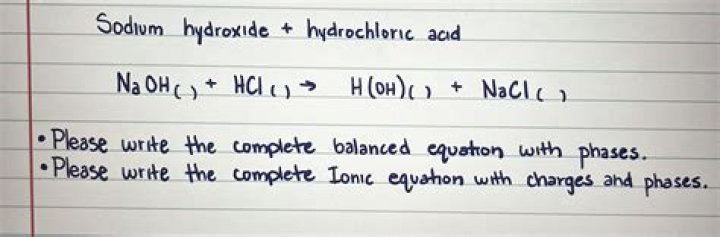 Sodium hydroxide + hydrochloric acid
NaOH( ) + HCl ( ) → H(OH)( ) + NaCl ( )
• Please write the complete balanced equation with phases.
• Please write the complete Ionic equation with charges and phases.